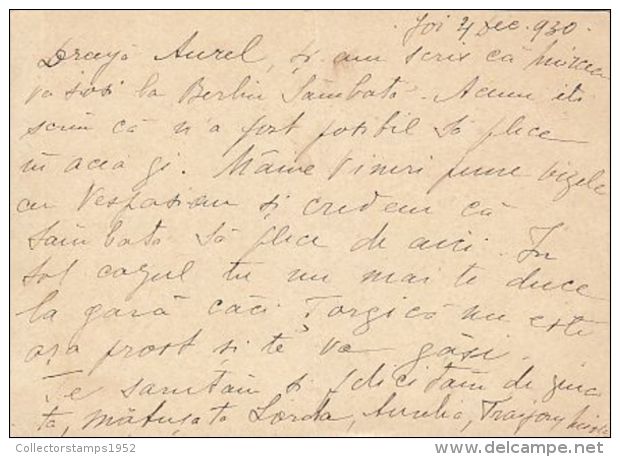 Joi 4 Dec. 930.
Dragă Aurel, ți am scris că Mircea
va sosi la Berlin Sâmbătă. Acum iți
scriu că n'a fost posibil să plece
in acea zi. Mâine Vineri pune vizele
cu Vespasian și credem că
Sâmbătă să plice de aici. In
tot cazul tu nu mai te duce
la gară căci nu este
așa prost si te va găsi.
Te sarutăm si felicităm de ziua
ta, mătușata Aurelia, Traian
Collectorstamps1952
delcampe.net